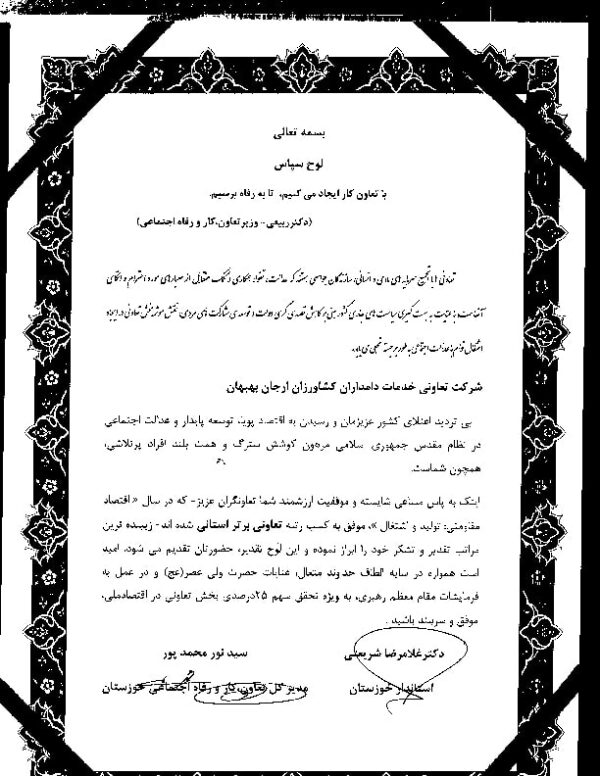 بسمه تعالی
لوح سپاس
با تعاون کار ایجاد می کنیم، تا به رفاه برسیم.
(دکتر ربیعی - وزیر تعاون، کار و رفاه اجتماعی)
تعاونی ها با تجمیع سرمایه های مادی و انسانی، سازندگان جوامعی هستند که عدالت، تعاون، همکاری و کمک متقابل از معیارهای مورد احترام و اتکای
آنهاست و با عنایت به جهت گیری سیاست های جاری کشور مبنی بر کاهش تصدی گری دولت و توسعه ی مشارکت های مردمی، نقش موثر بخش تعاونی در ایجاد
اشتغال توام با عدالت اجتماعی به طور برجسته تجلی می یابد.
شرکت تعاونی خدمات دامداران کشاورزان ارجان بهبهان
بی تردید اعتلای کشور عزیزمان و رسیدن به اقتصاد پویا، توسعه پایدار و عدالت اجتماعی
در نظام مقدس جمهوری اسلامی مرهون کوشش سترگ و همت بلند افراد پرتلاشی،
همچون شماست.
اینک به پاس مساعی شایسته و موفقیت ارزشمند شما تعاونگران عزیز- که در سال « اقتصاد
مقاومتی: تولید و اشتغال »، موفق به کسب رتبه تعاونی برتر استانی شده اند - زیبنده ترین
مراتب تقدیر و تشکر خود را ابراز نموده و این لوح تقدیر، حضورتان تقدیم می شود. امید
است همواره در سایه الطاف خداوند متعال، عنایات حضرت ولی عصر(عج) و در عمل به
فرمایشات مقام معظم رهبری، به ویژه تحقق سهم ۲۵درصدی بخش تعاونی در اقتصادملی،
موفق و سربلند باشید.
دکتر غلامرضا شریعتی
سید نور محمد پور
استاندار خوزستان
مدیر کل تعاون، کار و رفاه اجتماعی خوزستان